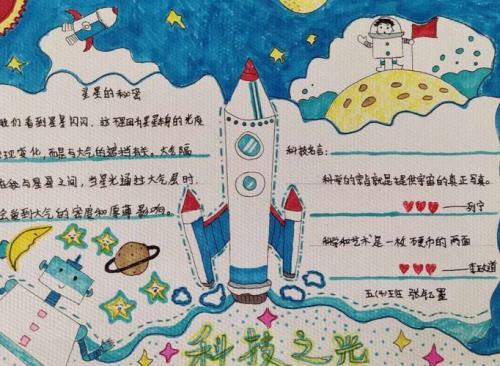 星星的秘密
我们看到星星闪闪,这不是因为星星本身的光度
出现变化,而是与大气的遮挡有关。大气隔
在我们与星星之间,当星光通过大气层时,
会受到大气的密度和厚薄影响。
科技名言:
科学的宗旨就是提供宇宙的真正写真。
——列宁
科学和艺术是一枚硬币的两面
——李政道
五(4)班
科技之光